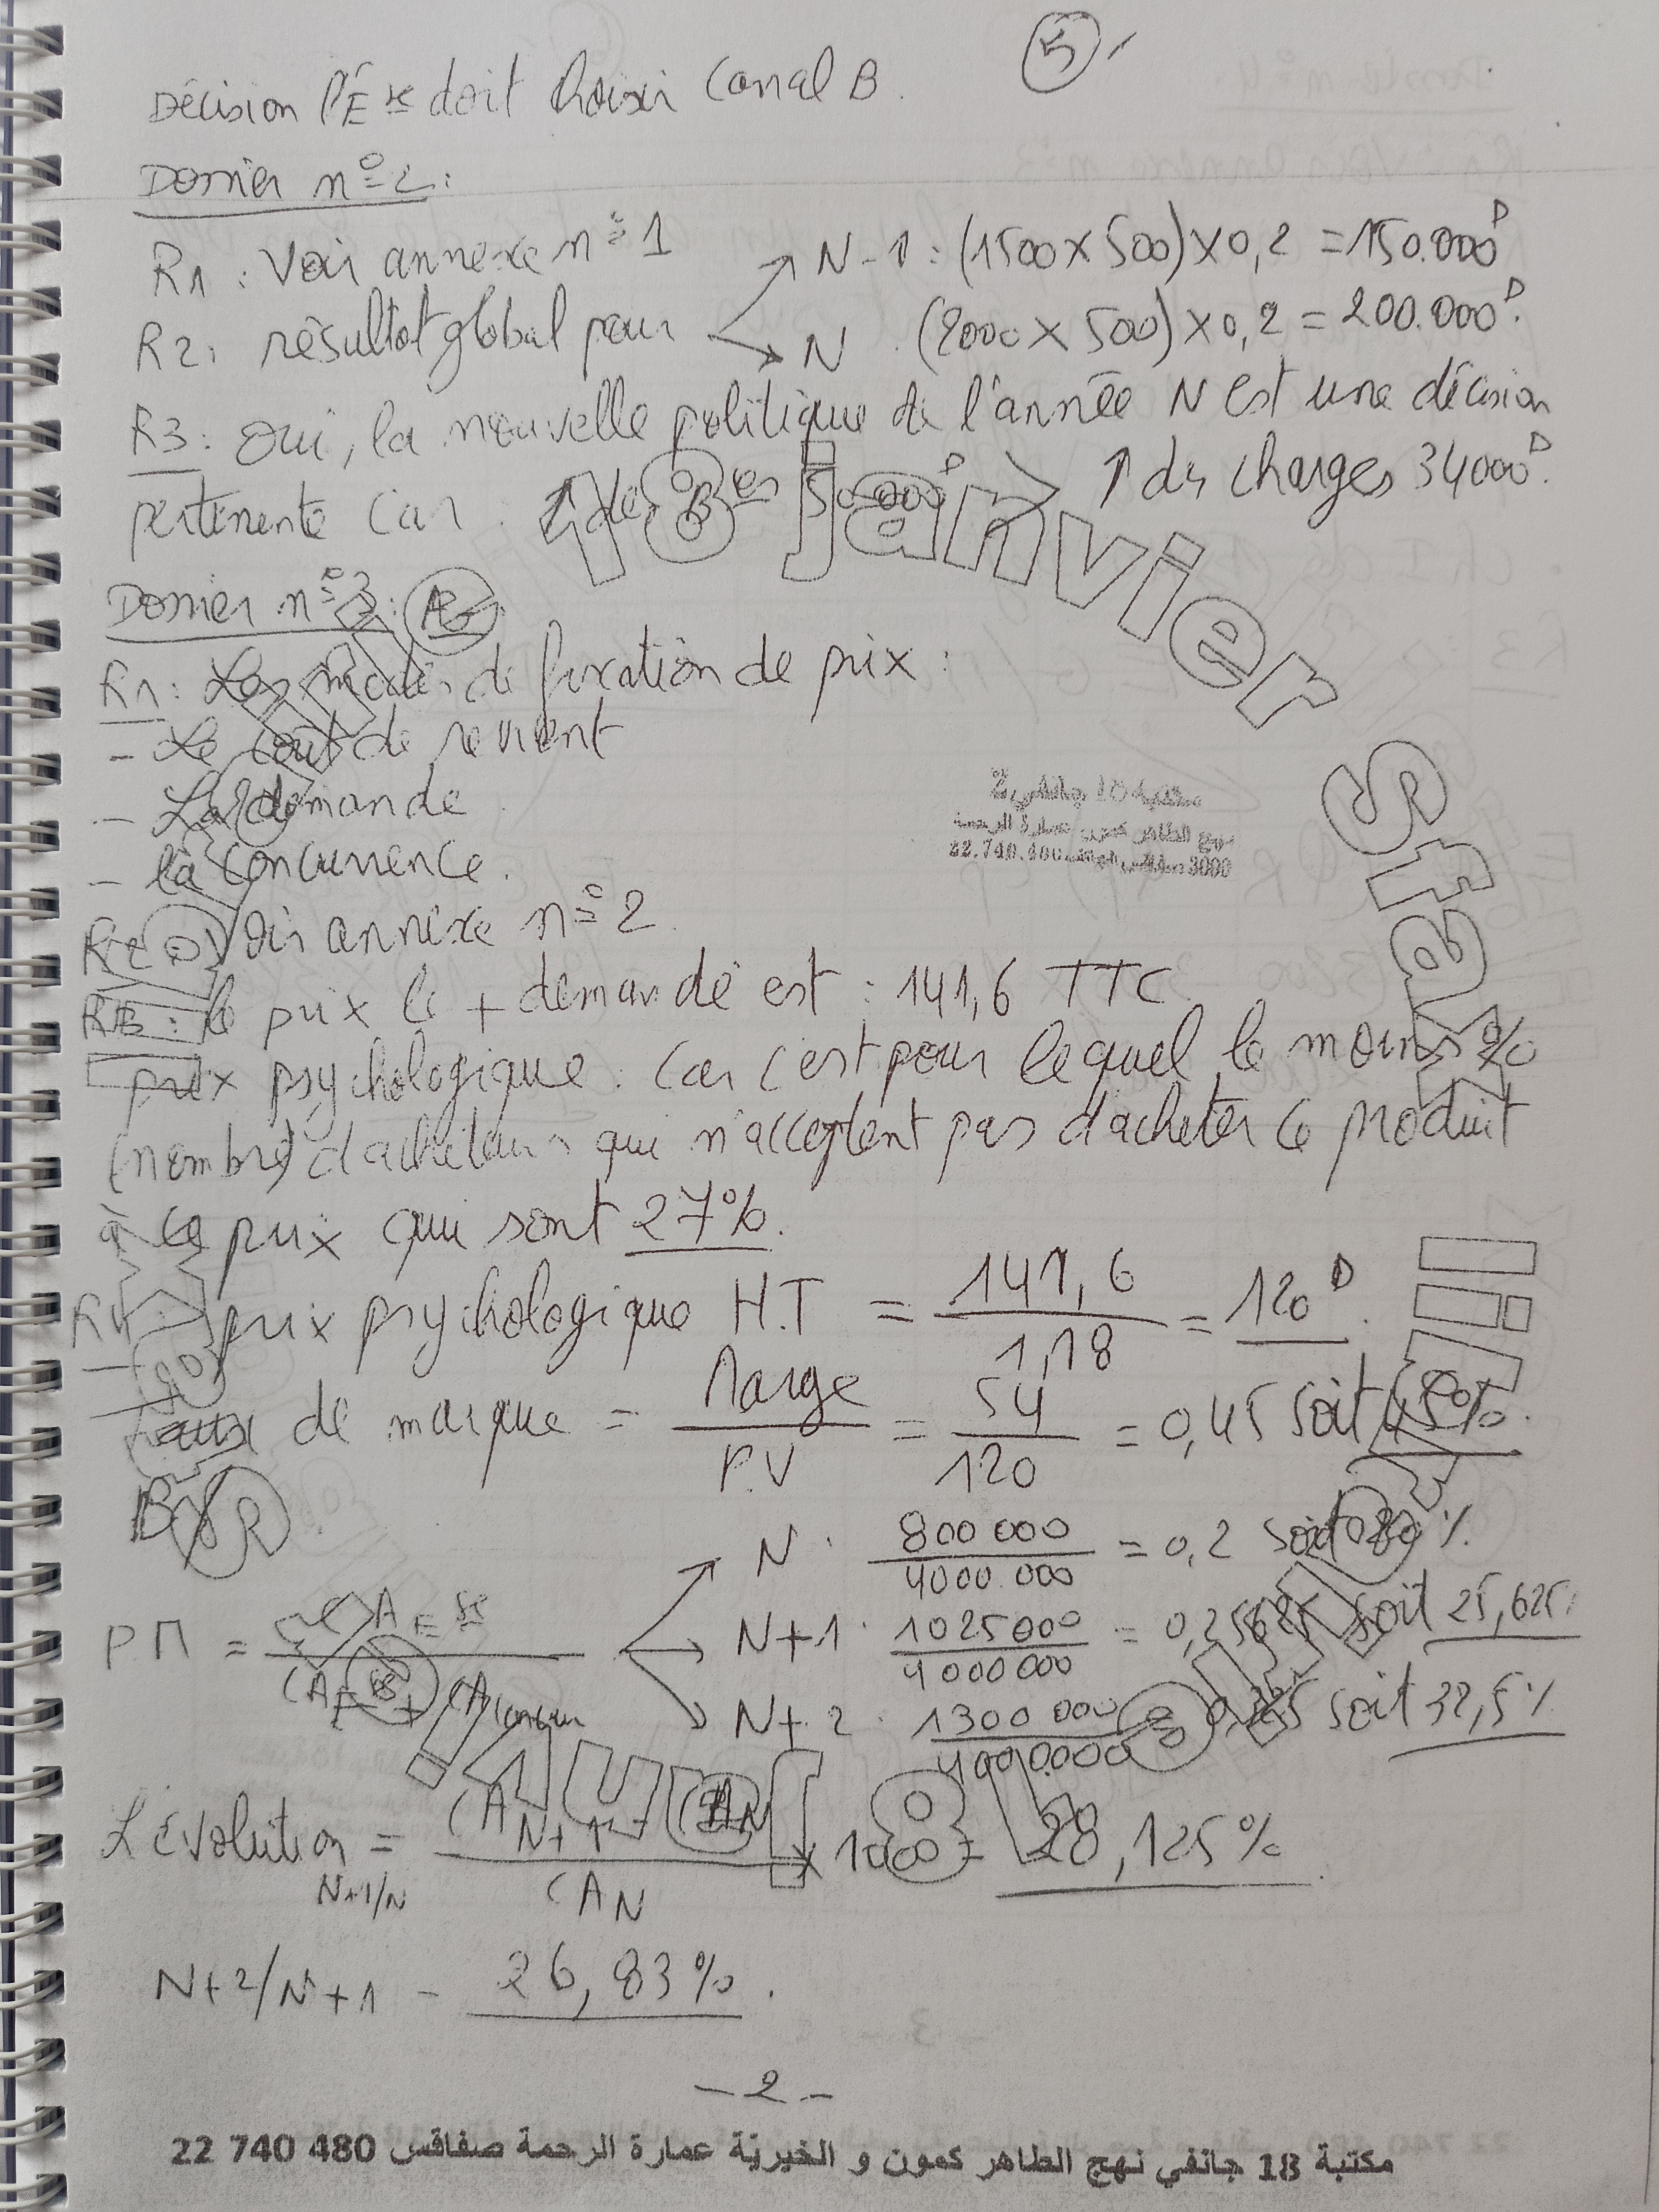 5
Décision l'Ése doit choisir Canal B.
Dossier n°2:
R1 : Voir annexe n°1
R2 : résultat global pour → N-1 : (1500 × 500) × 0,2 = 150.000D
→ N (2000 × 500) × 0,2 = 200.000D.
R3 : Oui, la nouvelle politique de l'année N est une décision
pertinente car ↑ des 50.000D > ↑ des charges 34000D.
Dossier n°3 : A
R1 : Les modes de fixation de prix :
- Le coût de revient
- La demande
- la concurrence.
R2 : Voir annexe n°2
R3 : le prix le + demandé est : 141,6 TTC
prix psychologique. Car c'est pour lequel le moins %
(nombre) d'acheteurs qui n'acceptent pas d'acheter ce produit
à ce prix qui sont 27%.
R4 : prix psychologique H.T = 141,6 / 1,18 = 120D.
taux de marque = Marge / P.V = 54 / 120 = 0,45 soit 45%.
B
N : 800 000 / 4000.000 = 0,2 soit 20%
PM = CA Ese / CA Ese + CA concur → N+1 : 1025000 / 4000000 = 0,25625 soit 25,625%
N+2 : 1300 000 / 4000.000 = 0,325 soit 32,5%
L'évolution N+1/N = CA N+1 - CA N / CA N × 100 = 28,125%.
N+2/N+1 = 26,83%.
- 2 -
مكتبة 18 جانفي نهج الطاهر كمون و الخيرية عمارة الرحمة صفاقس 480 740 22
18 janvier Sfax
مكتبة 18 جانفي 2
نهج الطاهر كمون عمارة الرحمة
3000 صفاقس الهاتف 22.740.480